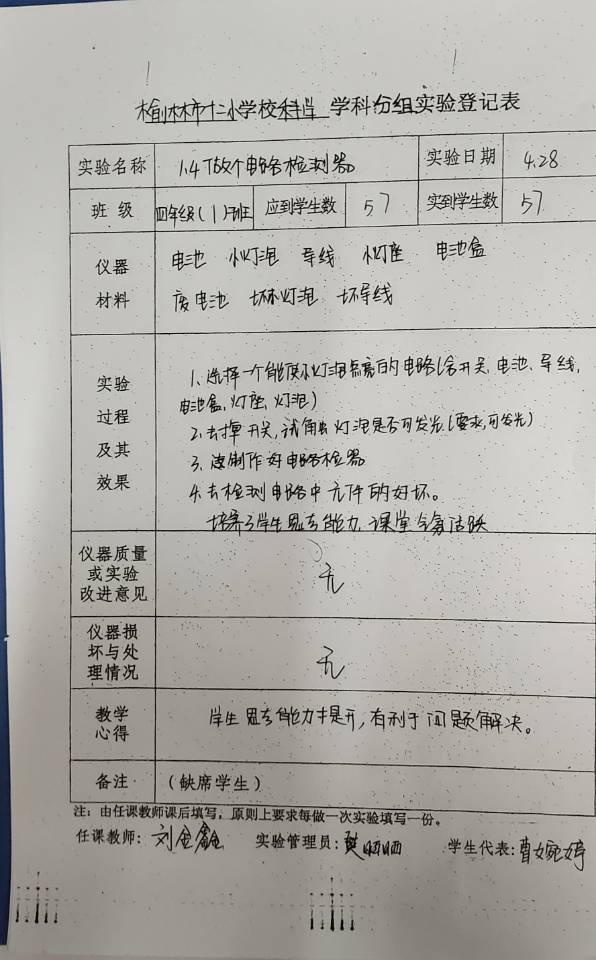 榆林市十二小学校科学 学科分组实验登记表
实验名称 1.4 做个电路检测器 实验日期 4.28
班 级 四年级(1)班 应到学生数 57 实到学生数 57
仪器 电池 小灯泡 导线 小灯座 电池盒
材料 废电池 坏小灯泡 坏导线
实验过程及其效果
1、选择一个能使小灯泡点亮的电路(含开关、电池、导线,
电池盒,灯座,灯泡)
2、去掉开关,试触灯泡是否可发光.(要求,可发光)
3、制作好电路检器
4、去检测电路中元件的好坏。
培养了学生思考能力,课堂气氛活跃
仪器质量
或实验 无
改进意见
仪器损
坏与处 无
理情况
教学 学生思考能力提升,有利于问题解决。
心得
备注 (缺席学生)
注:由任课教师课后填写,原则上要求每做一次实验填写一份。
任课教师: 刘金鑫 实验管理员: 学生代表:曹婉婷